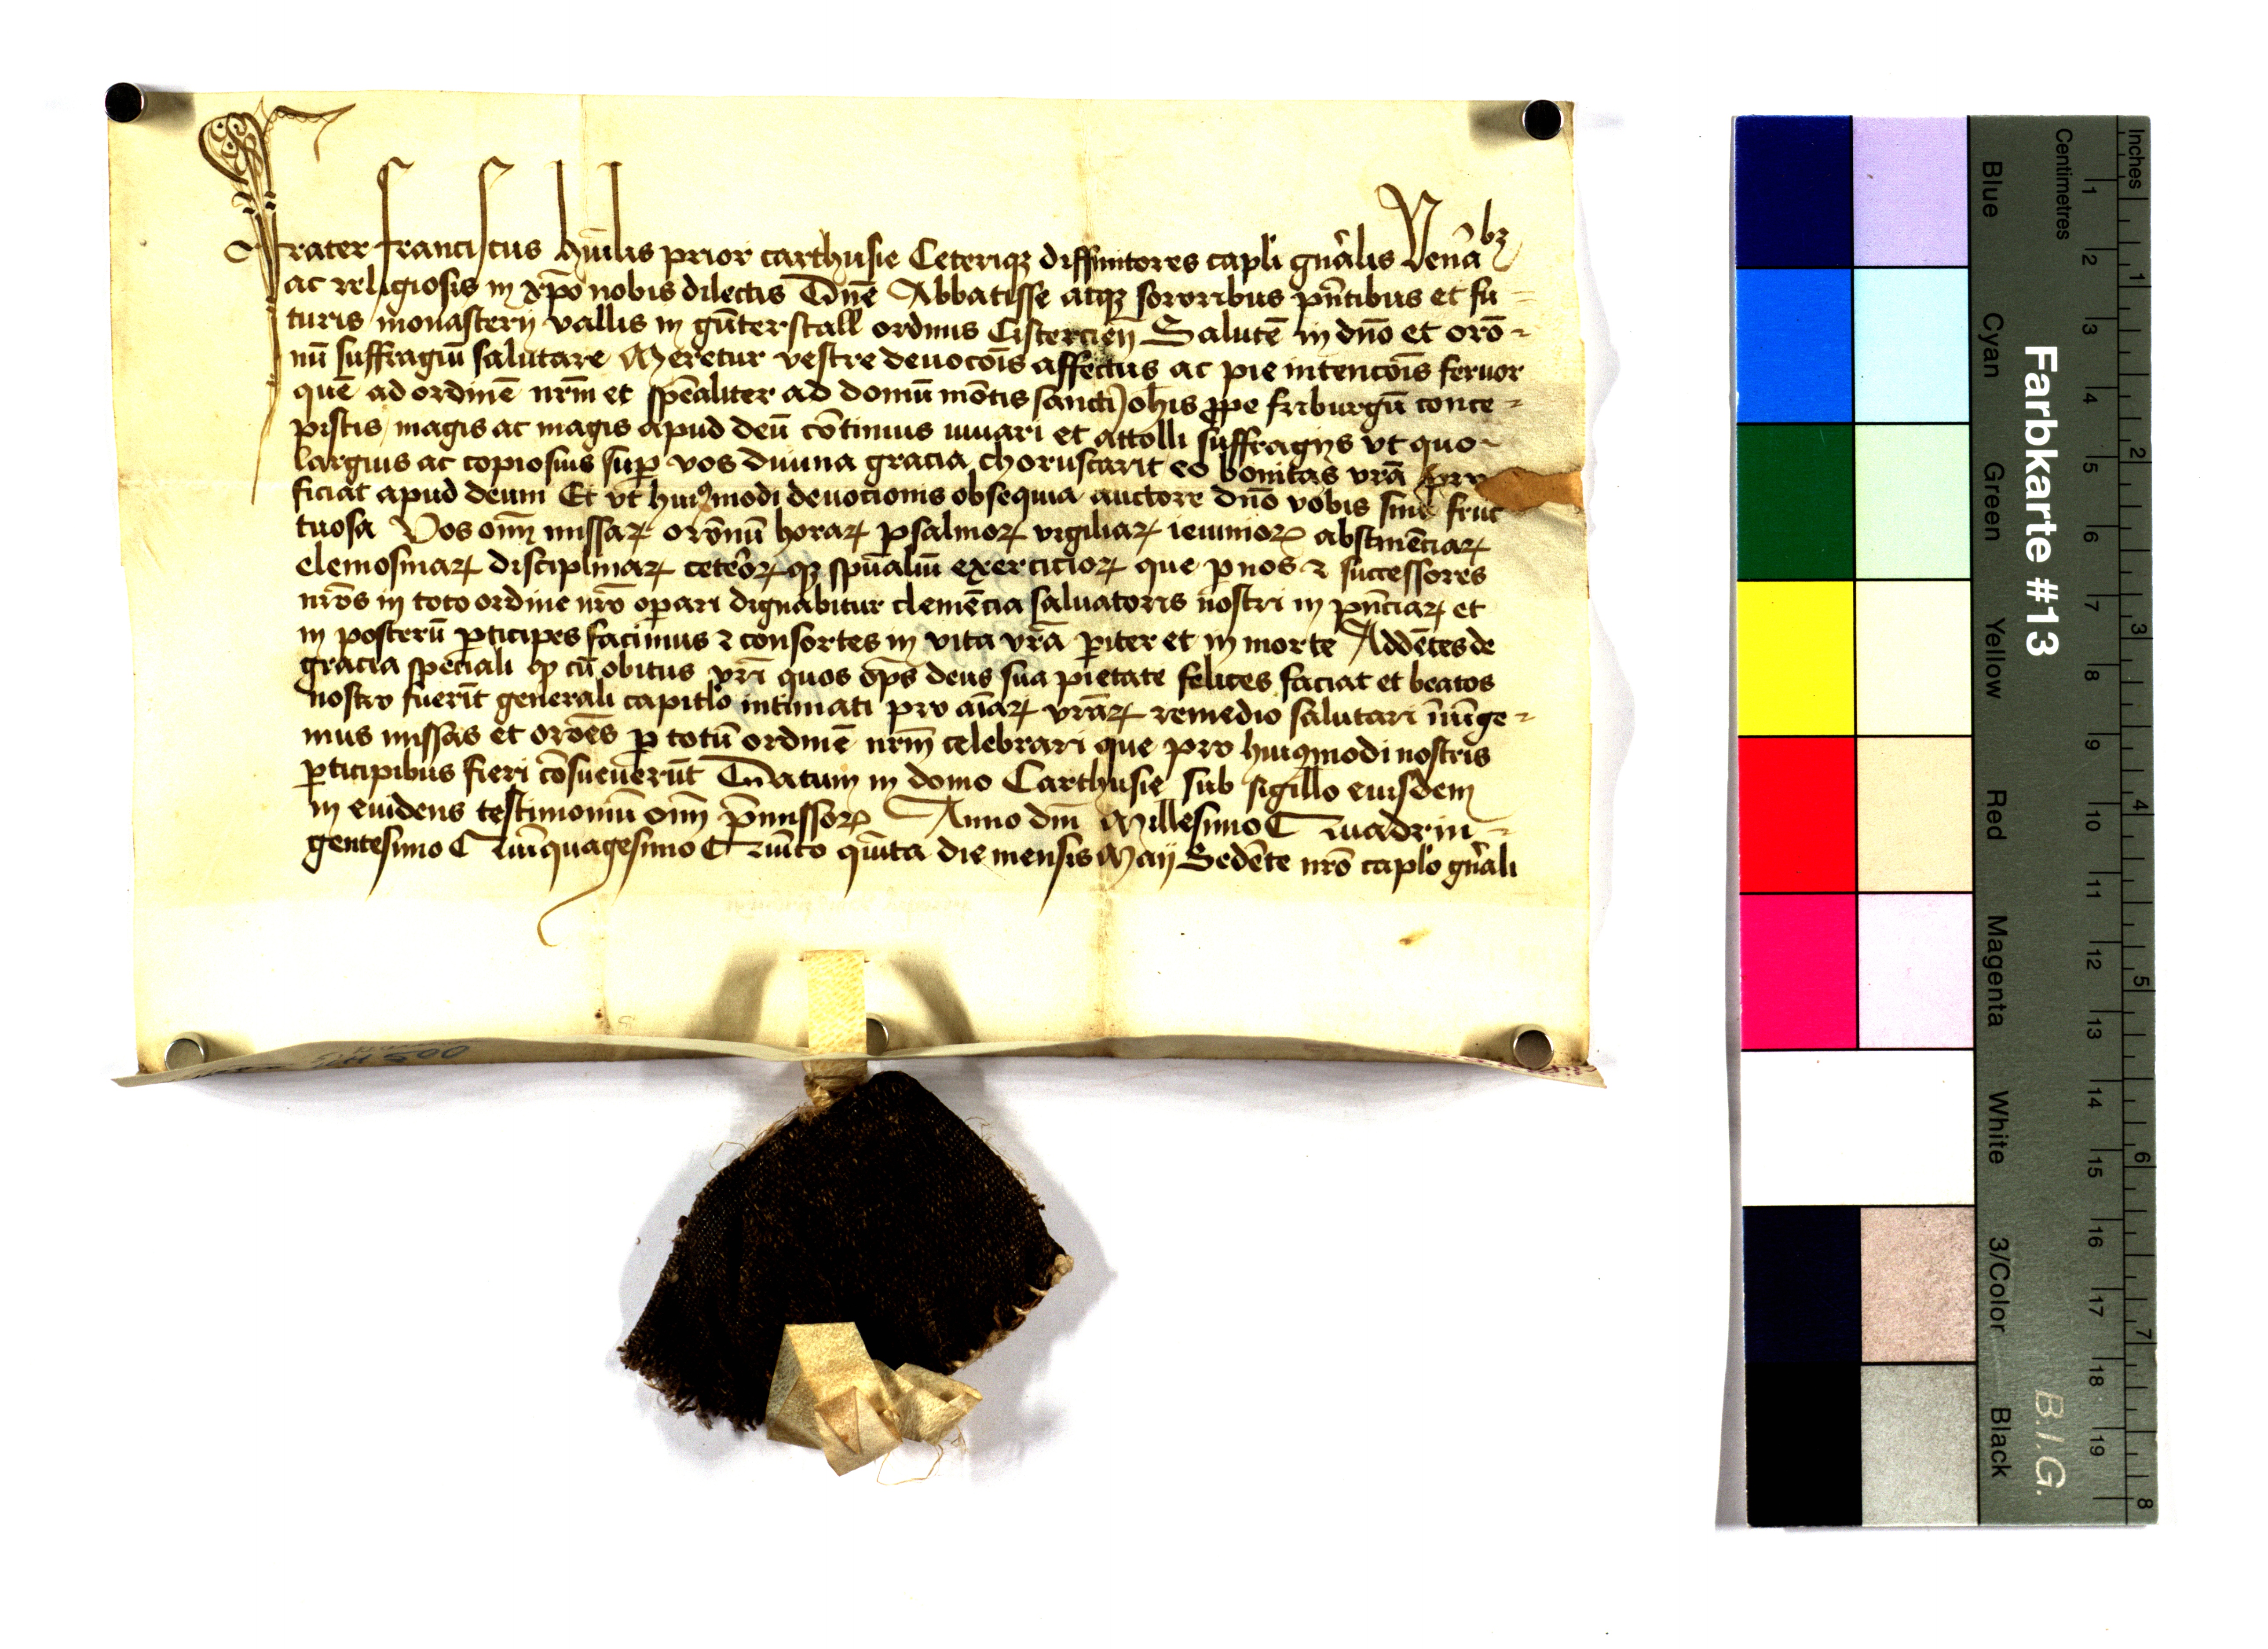 Frater franciscus humilis prior carthusie Ceteriqȝ diffinitores capli gn̄alis Venābȝ
ac religiosis in xp̄o nobis dilectis Dn̄e Abbatisse atqȝ sororibus pn̄tibus et fu-
turis monasterij vallis in gūterstall ordinis Cistercien̄ Salutē in dn̄o et orō-
nū suffragiū salutare Meretur vestre deuocōis affectus ac pie intencōis feruor
quē ad ordinē nrm̄ et spēaliter ad domū mōtis sancti Joh̄is ꝓpe friburgū conce-
pistis magis ac magis apud deū cōtinuis iuuari et attolli suffragijs vt quo-
largius ac copiosius suꝑ vos diuina gracia choruscarit eo bonitas vrā pro
ficiat apud deum Et vt huiꝰmodi deuotionis obsequia auctore dn̄o vobis sint fruc
tuosa Vos oīm missaꝝ orōnū horaꝝ psalmoꝝ vigiliaꝝ ieiunioꝝ abstinēciaꝝ
elemosinaꝝ disciplinaꝝ ceteroꝝqȝ spūaliū exercitioꝝ que ꝑ nos ⁊ successores
nrōs in toto ordine nrō oꝑari dignabitur clemēcia saluatoris nostri in pn̄ciaꝝ et
in posterū ꝑticipes facimus ⁊ consortes in vita vrā ꝑiter et in morte Addētes de
gracia speciali ꝙ cū obitus vrī quos ōps deus sua pietate felices faciat et beatos
nostro fuerīt generali capitlo intimati pro aīaꝝ vrāꝝ remedio salutari īiūge-
mus missas et orōes ꝑ totū ordinē nrm̄ celebrari que pro huiꝰmodi nostris
ꝑticipibus fieri cōsueuerūt Datum in domo Carthusie sub sigillo eiusdem
in euidens testimoniū oīm p̄missoꝝ Anno dnī Millesimo Quadrin-
gentesimo Quīquagesimo Quīto quīta die mensis Maij Sedēte nrō caplo gn̄ali
5 H 500
Farbkarte #13
B.I.G.
Inches 1 2 3 4 5 6 7 8
Centimetres 1 2 3 4 5 6 7 8 9 10 11 12 13 14 15 16 17 18 19
Blue Cyan Green Yellow Red Magenta White 3/Color Black